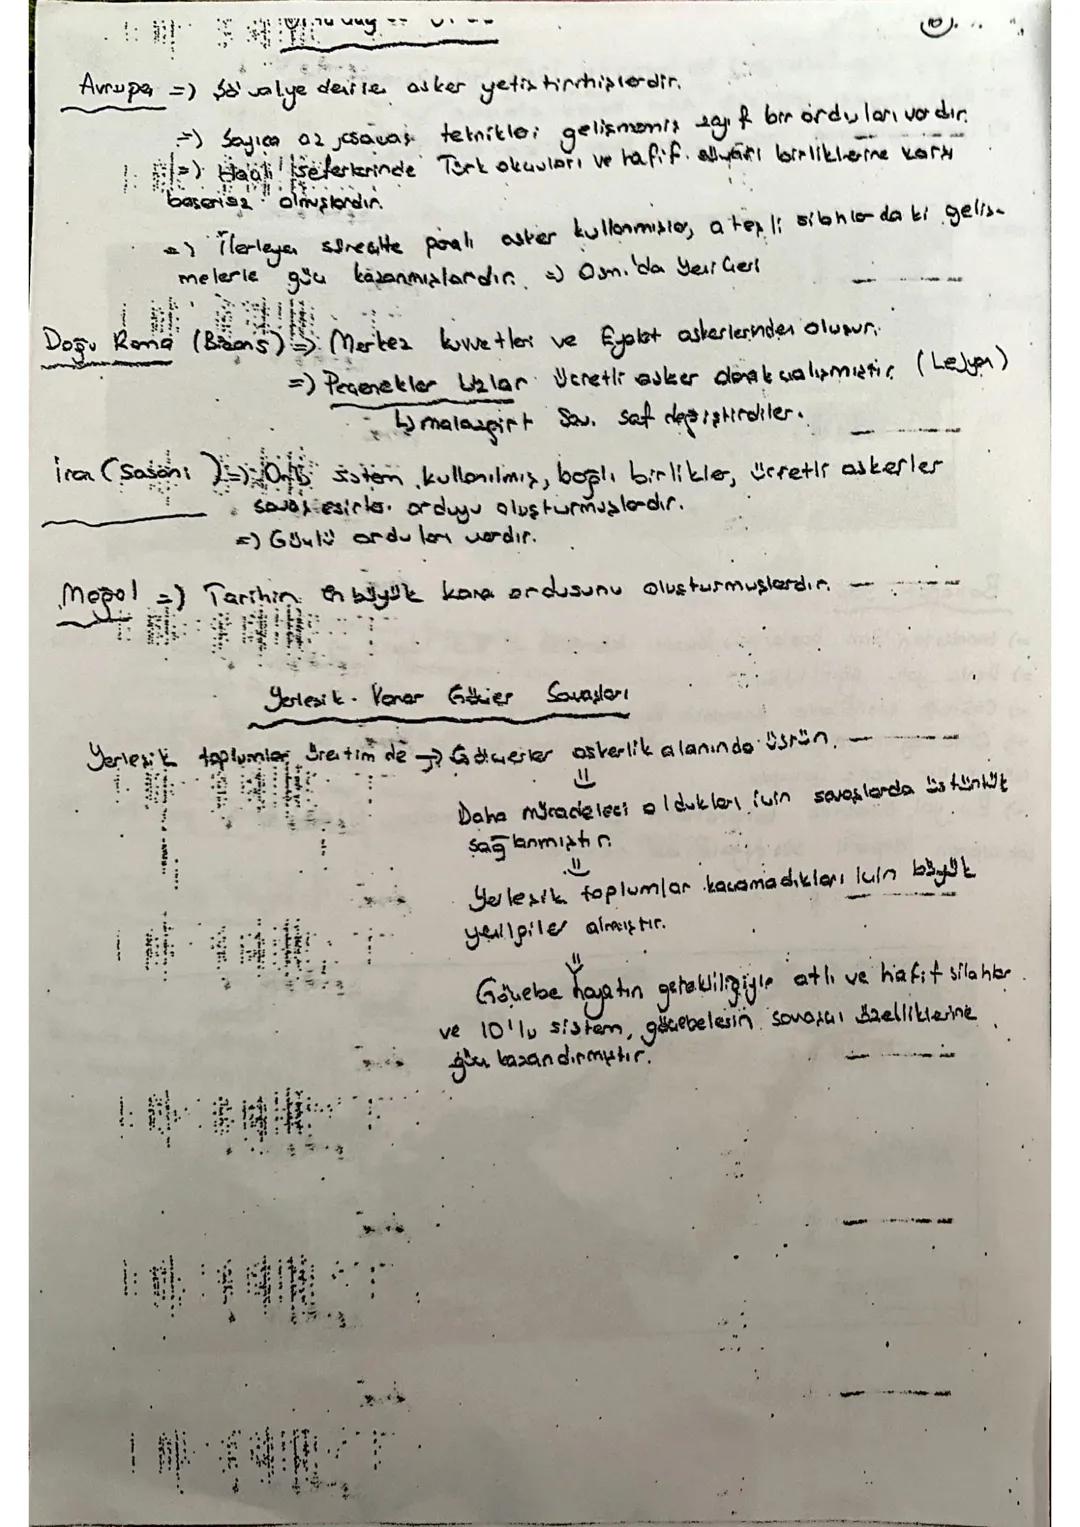 Avrupa => Şövalye denilen asker yetiştirmişlerdir.
=> Sayıca az, savaş teknikleri gelişmemiş zayıf bir orduları vardır.
=> Haçlı seferlerinde Türk okçuları ve hafif süvari birliklerine karşı
başarısız olmuşlardır.
=> İlerleyen süreçte paralı asker kullanmışlar, ateşli silahlarda ki geliş-
melerle güç kazanmışlardır. => Osm.'da Yeniçeri
Doğu Roma (Bizans) => Merkez kuvvetleri ve Eyalet askerlerinden oluşur.
=> Peçenekler Uzlar ücretli asker olarak çalışmıştır. (Lejyon)
↳ malazgirt Sav. saf değiştirdiler.
İran (Sasani) => Onlu sistem kullanılmış, bağlı birlikler, ücretli askerler
savaş esirler orduyu oluşturmuşlardır.
=> Güçlü orduları vardır.
Moğol => Tarihin en büyük kara ordusunu oluşturmuşlardır.
Yerleşik - Konar Göçer Savaşları
Yerleşik toplumlar üretim de → Göçerler askerlik alanında üstün.
Daha mücadeleci oldukları için savaşlarda üstünlük
sağlanmıştır.
Yerleşik toplumlar kaçamadıkları için büyük
yenilgiler almıştır.
Göçebe hayatın gerekliliğiyle atlı ve hafif silahlar
ve 10'lu sistem, göçebelerin savaşçı özelliklerine
güç kazandırmıştır.